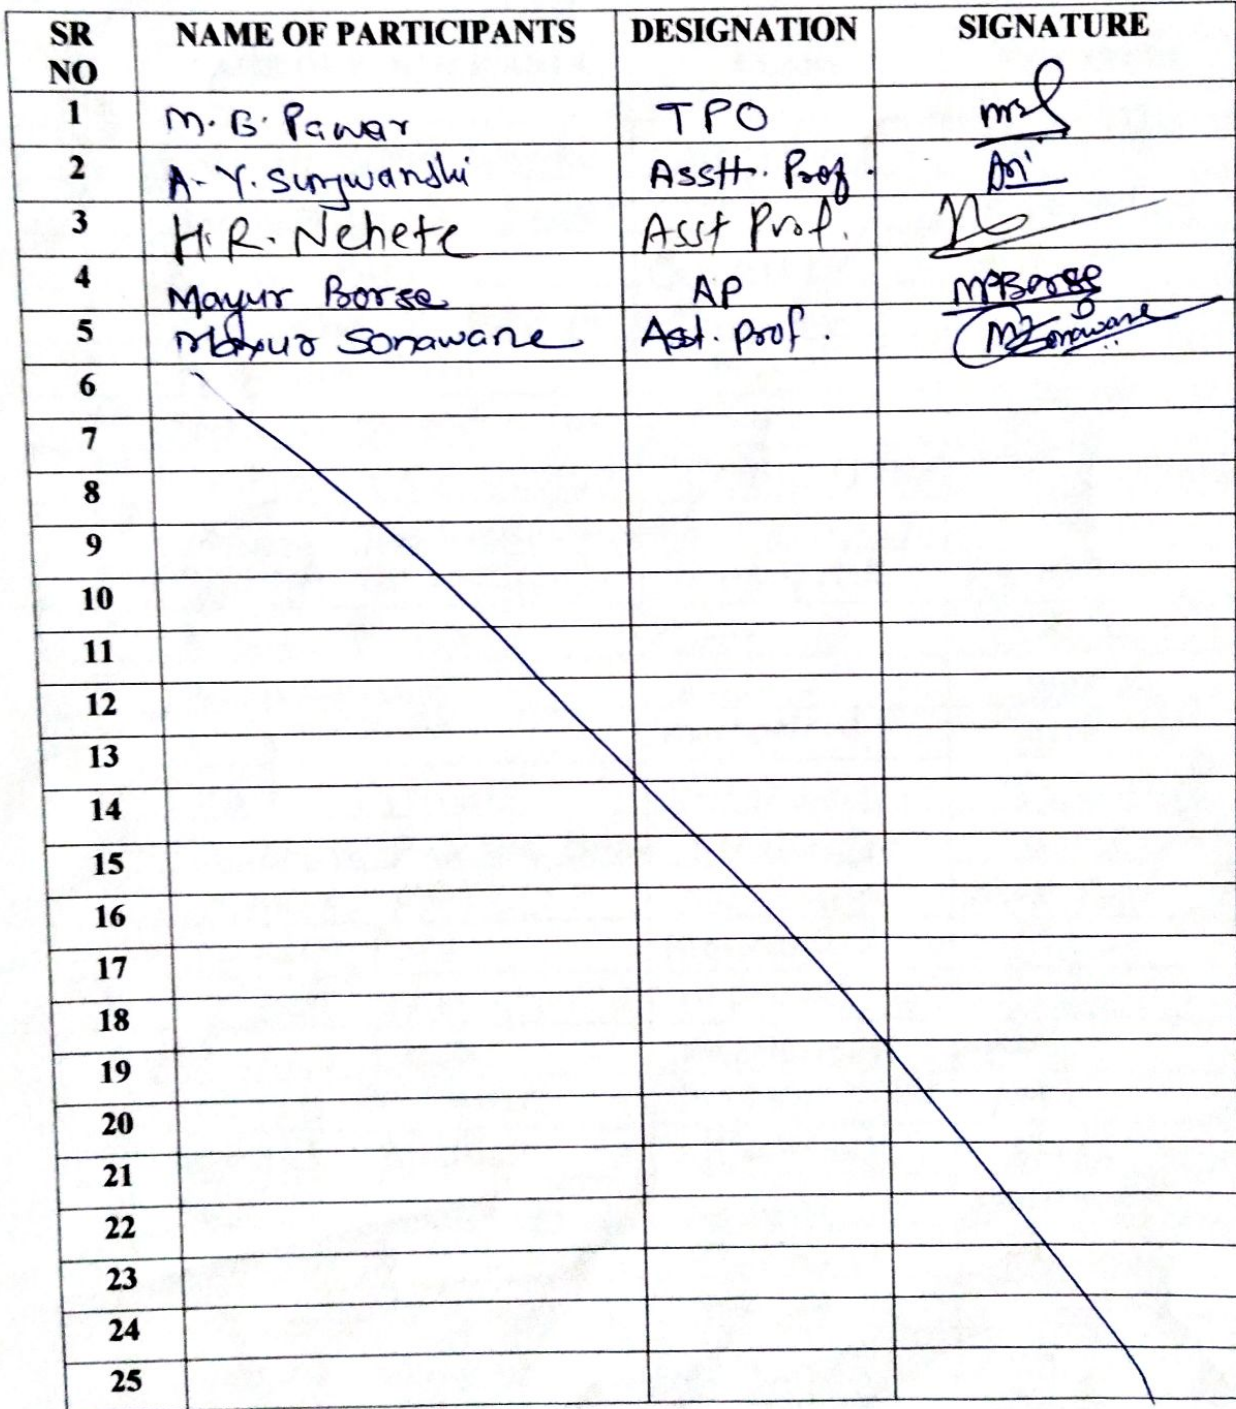 SR NO NAME OF PARTICIPANTS DESIGNATION SIGNATURE
1 M. B. Pawar TPO
2 A. Y. Surywanshi Asstt. Prof.
3 H. R. Nehete Asst Prof.
4 Mayur Borse AP MPBorse
5 Mayur Sonawane Asst. Prof. MSonawane
6
7
8
9
10
11
12
13
14
15
16
17
18
19
20
21
22
23
24
25